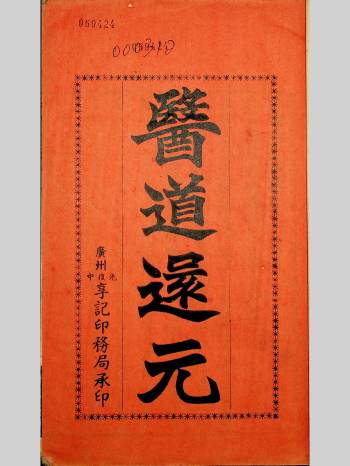 069424
醫道還元
廣州
光復中
享記印務局承印